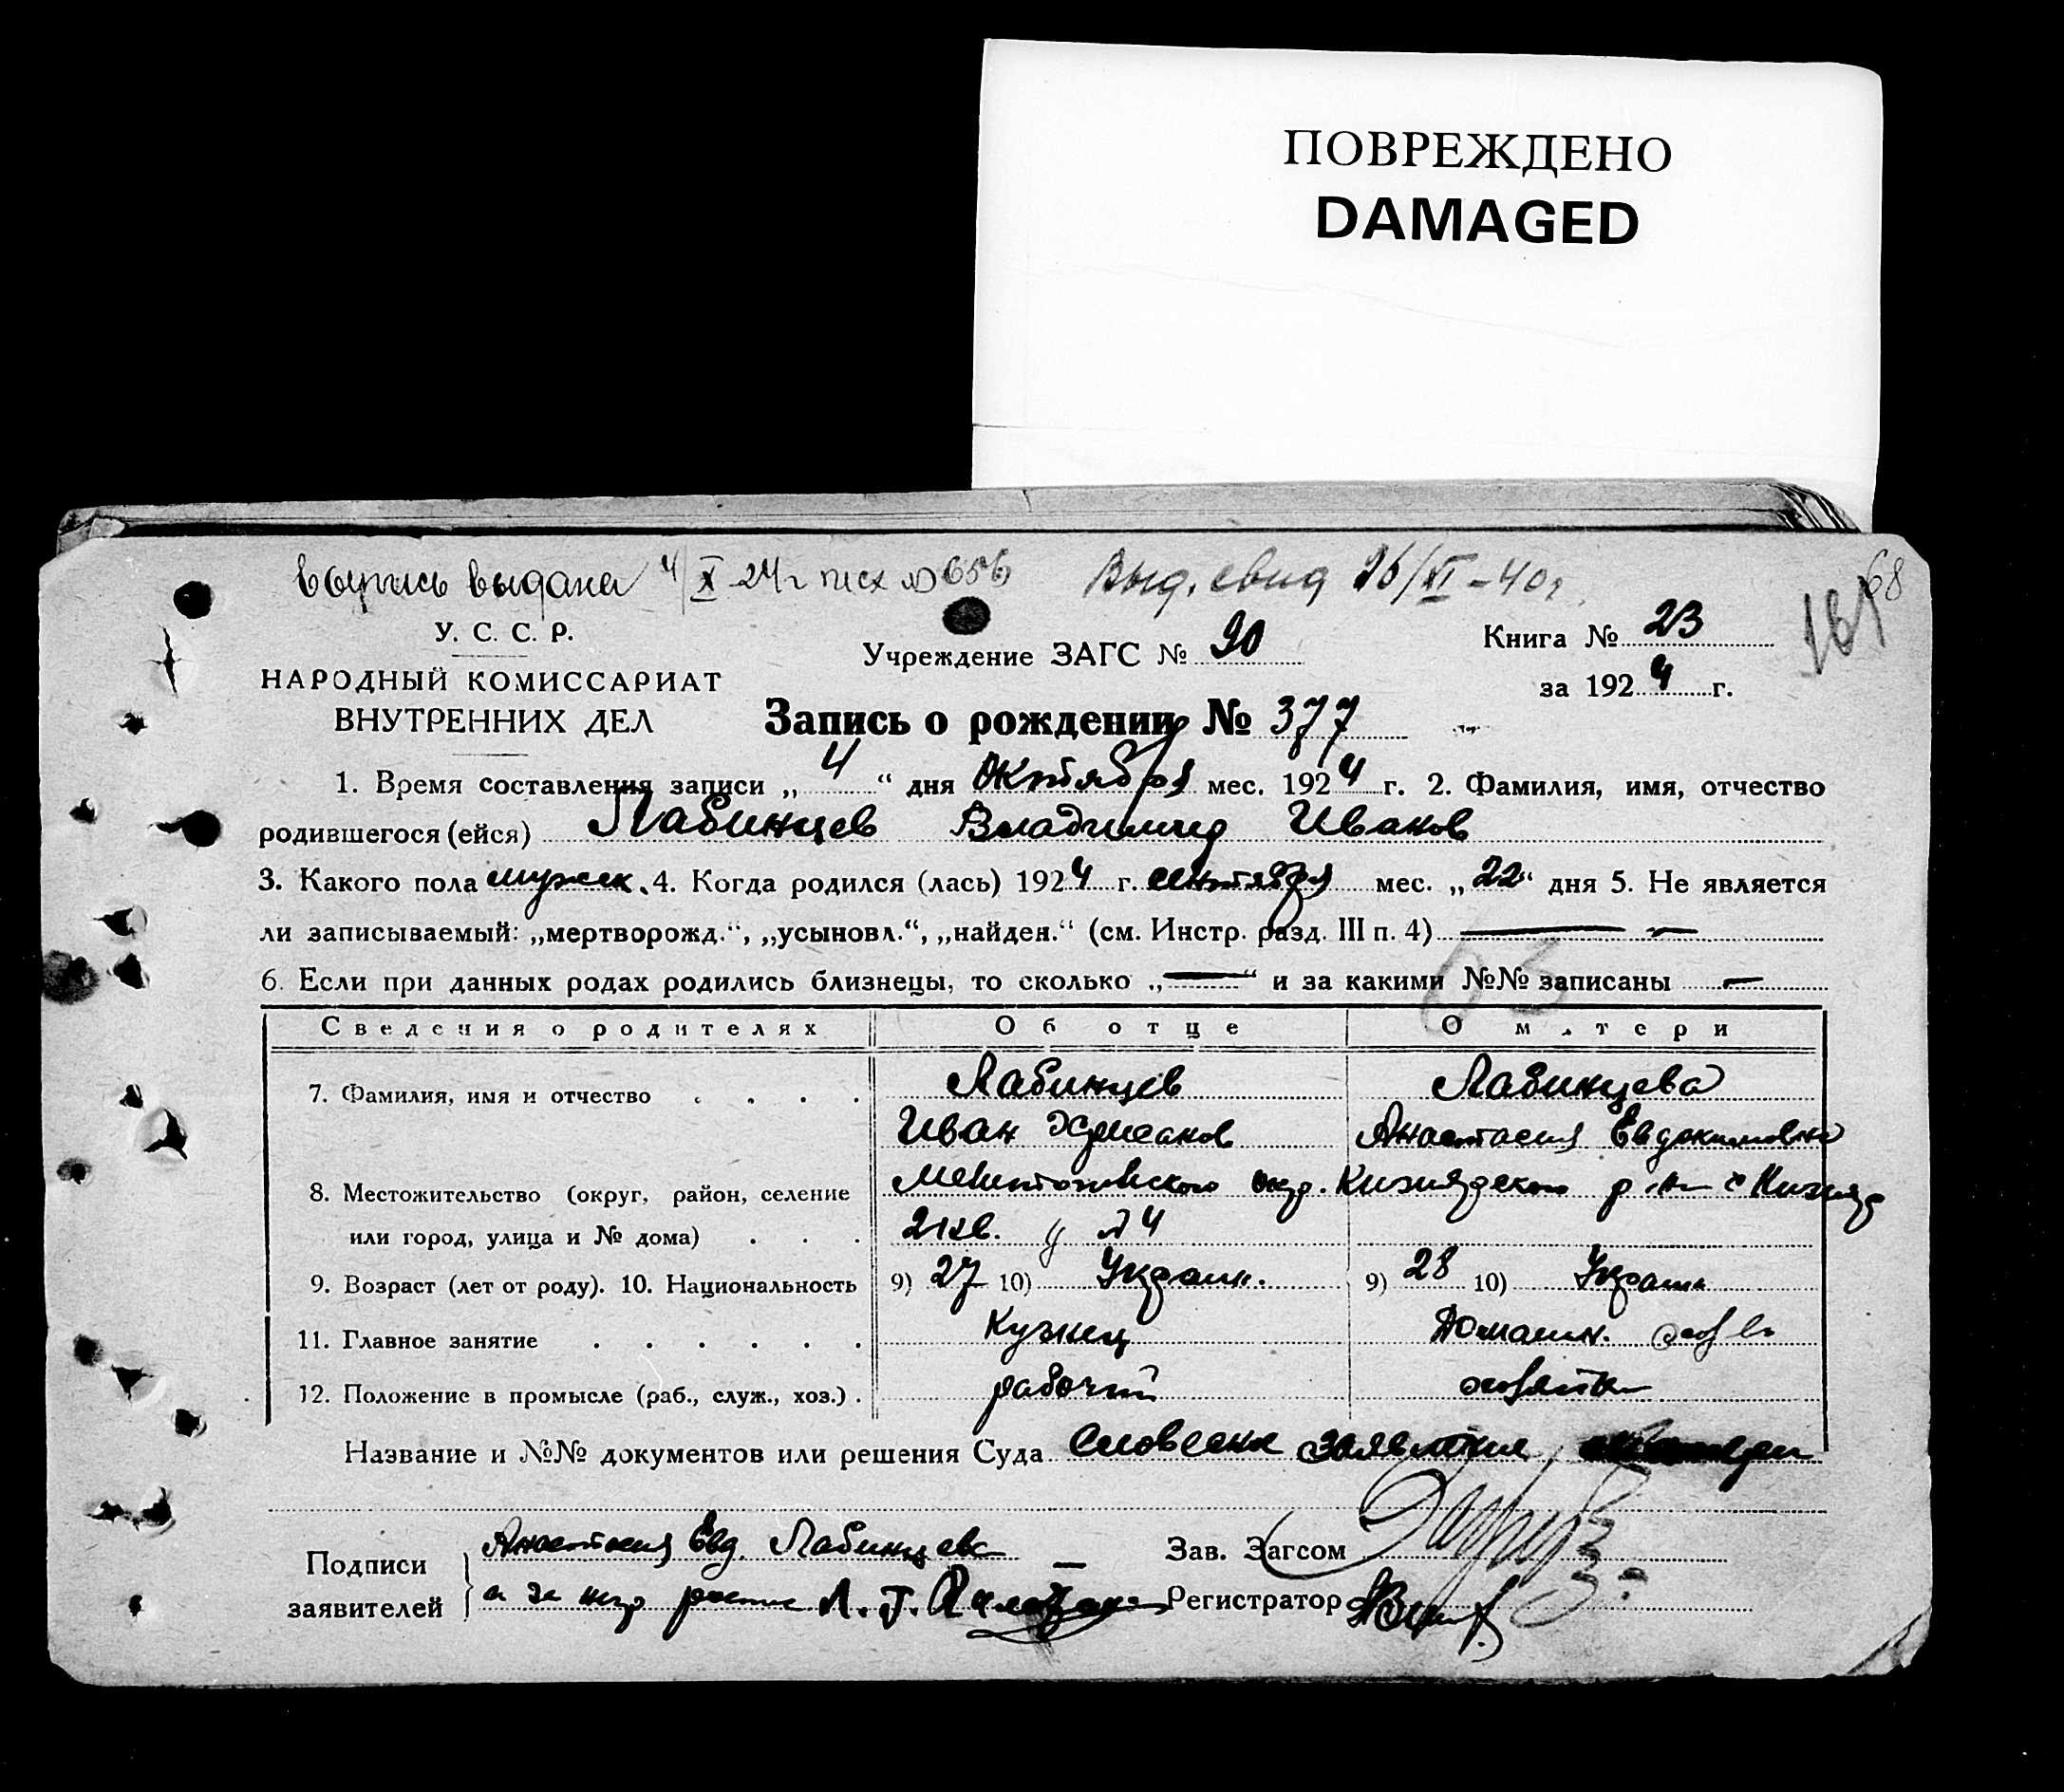 ПОВРЕЖДЕНО
DAMAGED
68
выпись выдана 4/X-24г №656 Выд. свид 26/XI-40г.
161
У. С. С. Р.
НАРОДНЫЙ КОМИССАРИАТ
ВНУТРЕННИХ ДЕЛ
Учреждение ЗАГС № 20
Книга № 23
за 1924 г.
Запись о рождении № 377
1. Время составления записи „4“ дня Октября мес. 1924 г. 2. Фамилия, имя, отчество
родившегося (ейся) Лабинцев Владимир Иванов
3. Какого пола мужск. 4. Когда родился (лась) 1924 г. сентября мес. „22“ дня 5. Не является
ли записываемый: „мертворожд.“, „усыновл.“, „найден.“ (см. Инстр. разд. III п. 4) — —
6. Если при данных родах родились близнецы, то сколько „—“ и за какими №№ записаны —
Сведения о родителях Об отце О матери
7. Фамилия, имя и отчество . . . . Лабинцев Лабинцева
Иван Анастасия Евдокимовна
8. Местожительство (округ, район, селение Мелитопольского окр. Кизиярского р-н с Кизияр
или город, улица и № дома) . . . 2 кв. 4
9. Возраст (лет от роду). 10. Национальность 9) 27 10) Украин. 9) 28 10) Украин
11. Главное занятие . . . . . . Кузнец Домашн.
12. Положение в промысле (раб., служ., хоз.) . рабочий хозяйка
Название и №№ документов или решения Суда Словесное заявление
Подписи заявителей Анастасия Евд. Лабинцева —
а за негр роспис Л. Г.
Зав. Загсом
Регистратор